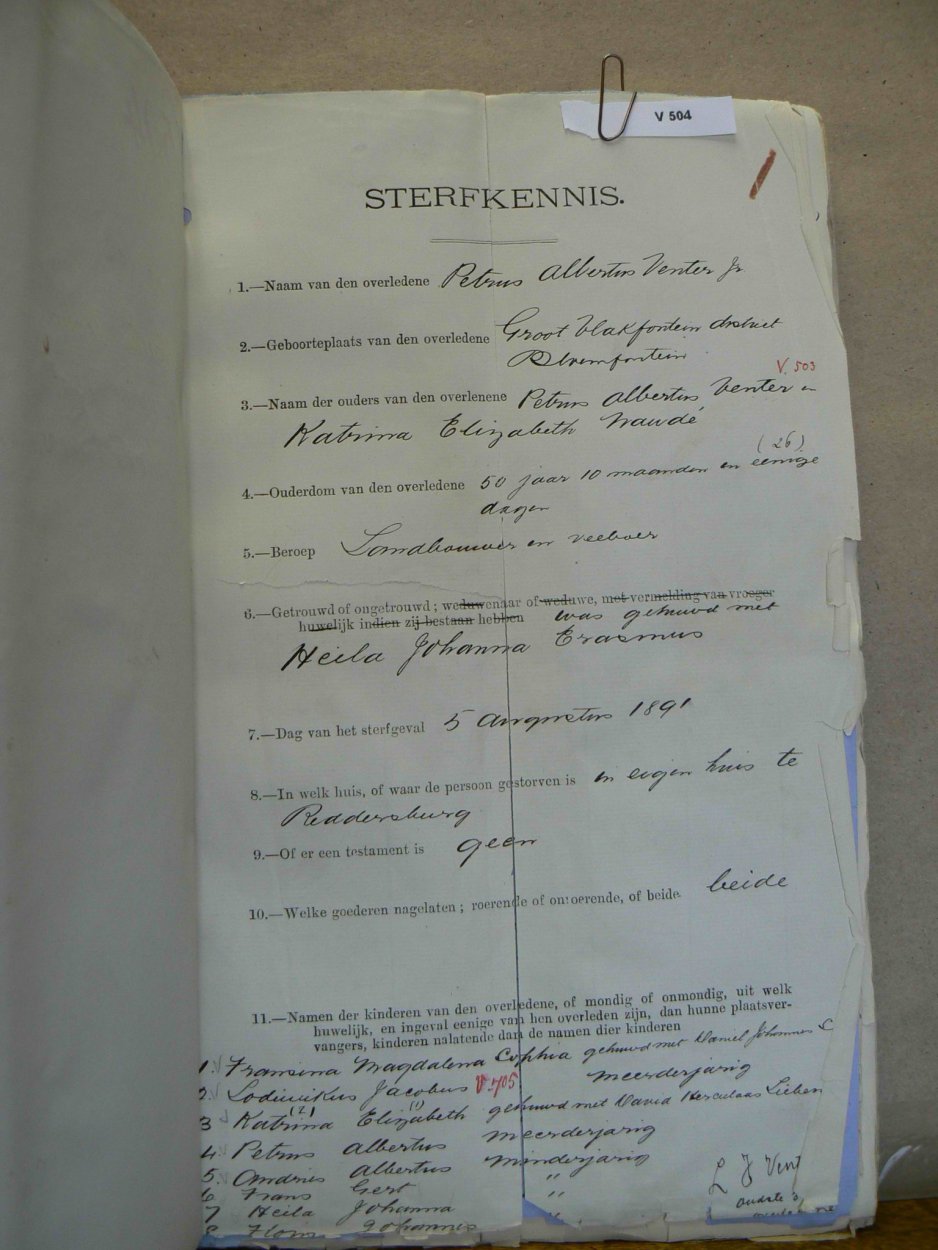 V 504
STERFKENNIS.
1.—Naam van den overledene Petrus Albertus Venter Jr
2.—Geboorteplaats van den overledene Groot Vlakfontein district
Bloemfontein
V. 503
3.—Naam der ouders van den overlenene Petrus Albertus Venter en
Katrina Elizabeth Naudé
(26)
4.—Ouderdom van den overledene 50 jaar 10 maanden en eenige
dagen
5.—Beroep Landbouwer en veeboer
6.—Getrouwd of ongetrouwd; weduwenaar of weduwe, met vermelding van vroeger
huwelijk indien zij bestaan hebben was gehuwd met
Heila Johanna Erasmus
7.—Dag van het sterfgeval 5 Augustus 1891
8.—In welk huis, of waar de persoon gestorven is in eigen huis te
Reddersburg
9.—Of er een testament is geen
10.—Welke goederen nagelaten; roerende of onroerende, of beide beide
11.—Namen der kinderen van den overledene, of mondig of onmondig, uit welk
huwelijk, en ingeval eenige van hen overleden zijn, dan hunne plaatsver-
vangers, kinderen nalatende dan de namen dier kinderen
1. Fransina Magdalena Cophia gehuwd met Daniel Johannes C
2. Lodiwikus Jacobus V.705 meerderjarig
3 Katrina (2) Elizabeth (1) gehuwd met David Herculaas Lieben
4. Petrus Albertus meerderjarig
5. Andries Albertus minderjarig
6 Frans Gert "
7 Heila Johanna "
8 Floris Johannes
L J Vent
oudste